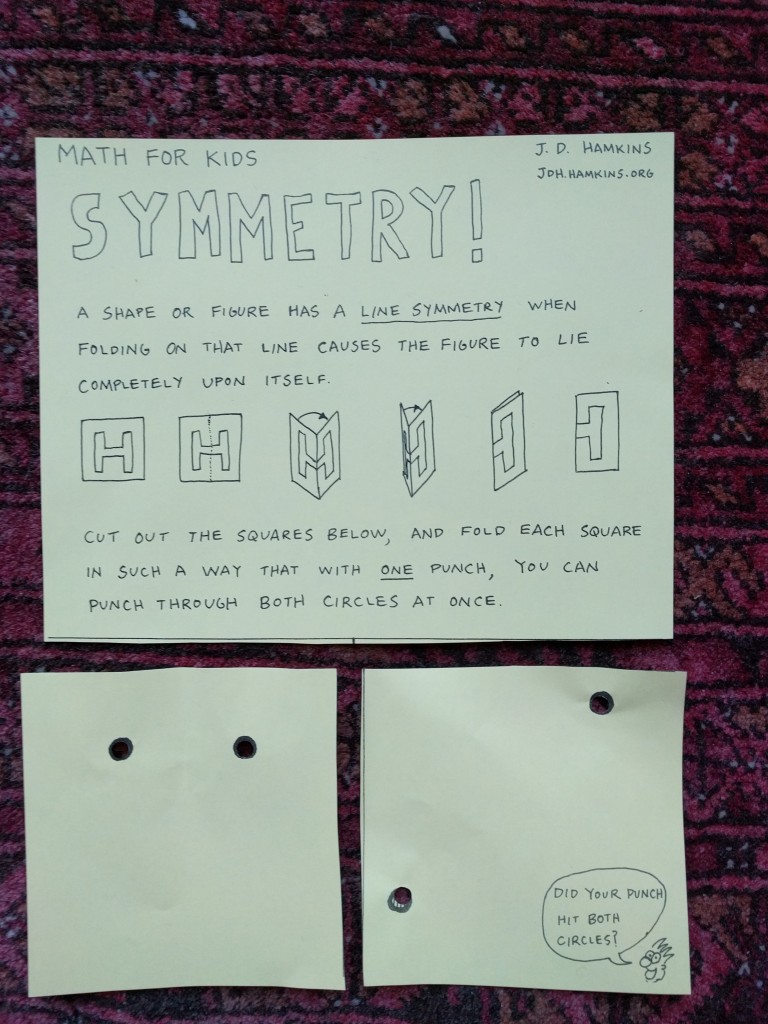 MATH FOR KIDS
J. D. HAMKINS
JDH.HAMKINS.ORG
SYMMETRY!
A SHAPE OR FIGURE HAS A LINE SYMMETRY WHEN
FOLDING ON THAT LINE CAUSES THE FIGURE TO LIE
COMPLETELY UPON ITSELF.
CUT OUT THE SQUARES BELOW, AND FOLD EACH SQUARE
IN SUCH A WAY THAT WITH ONE PUNCH, YOU CAN
PUNCH THROUGH BOTH CIRCLES AT ONCE.
DID YOUR PUNCH
HIT BOTH
CIRCLES?